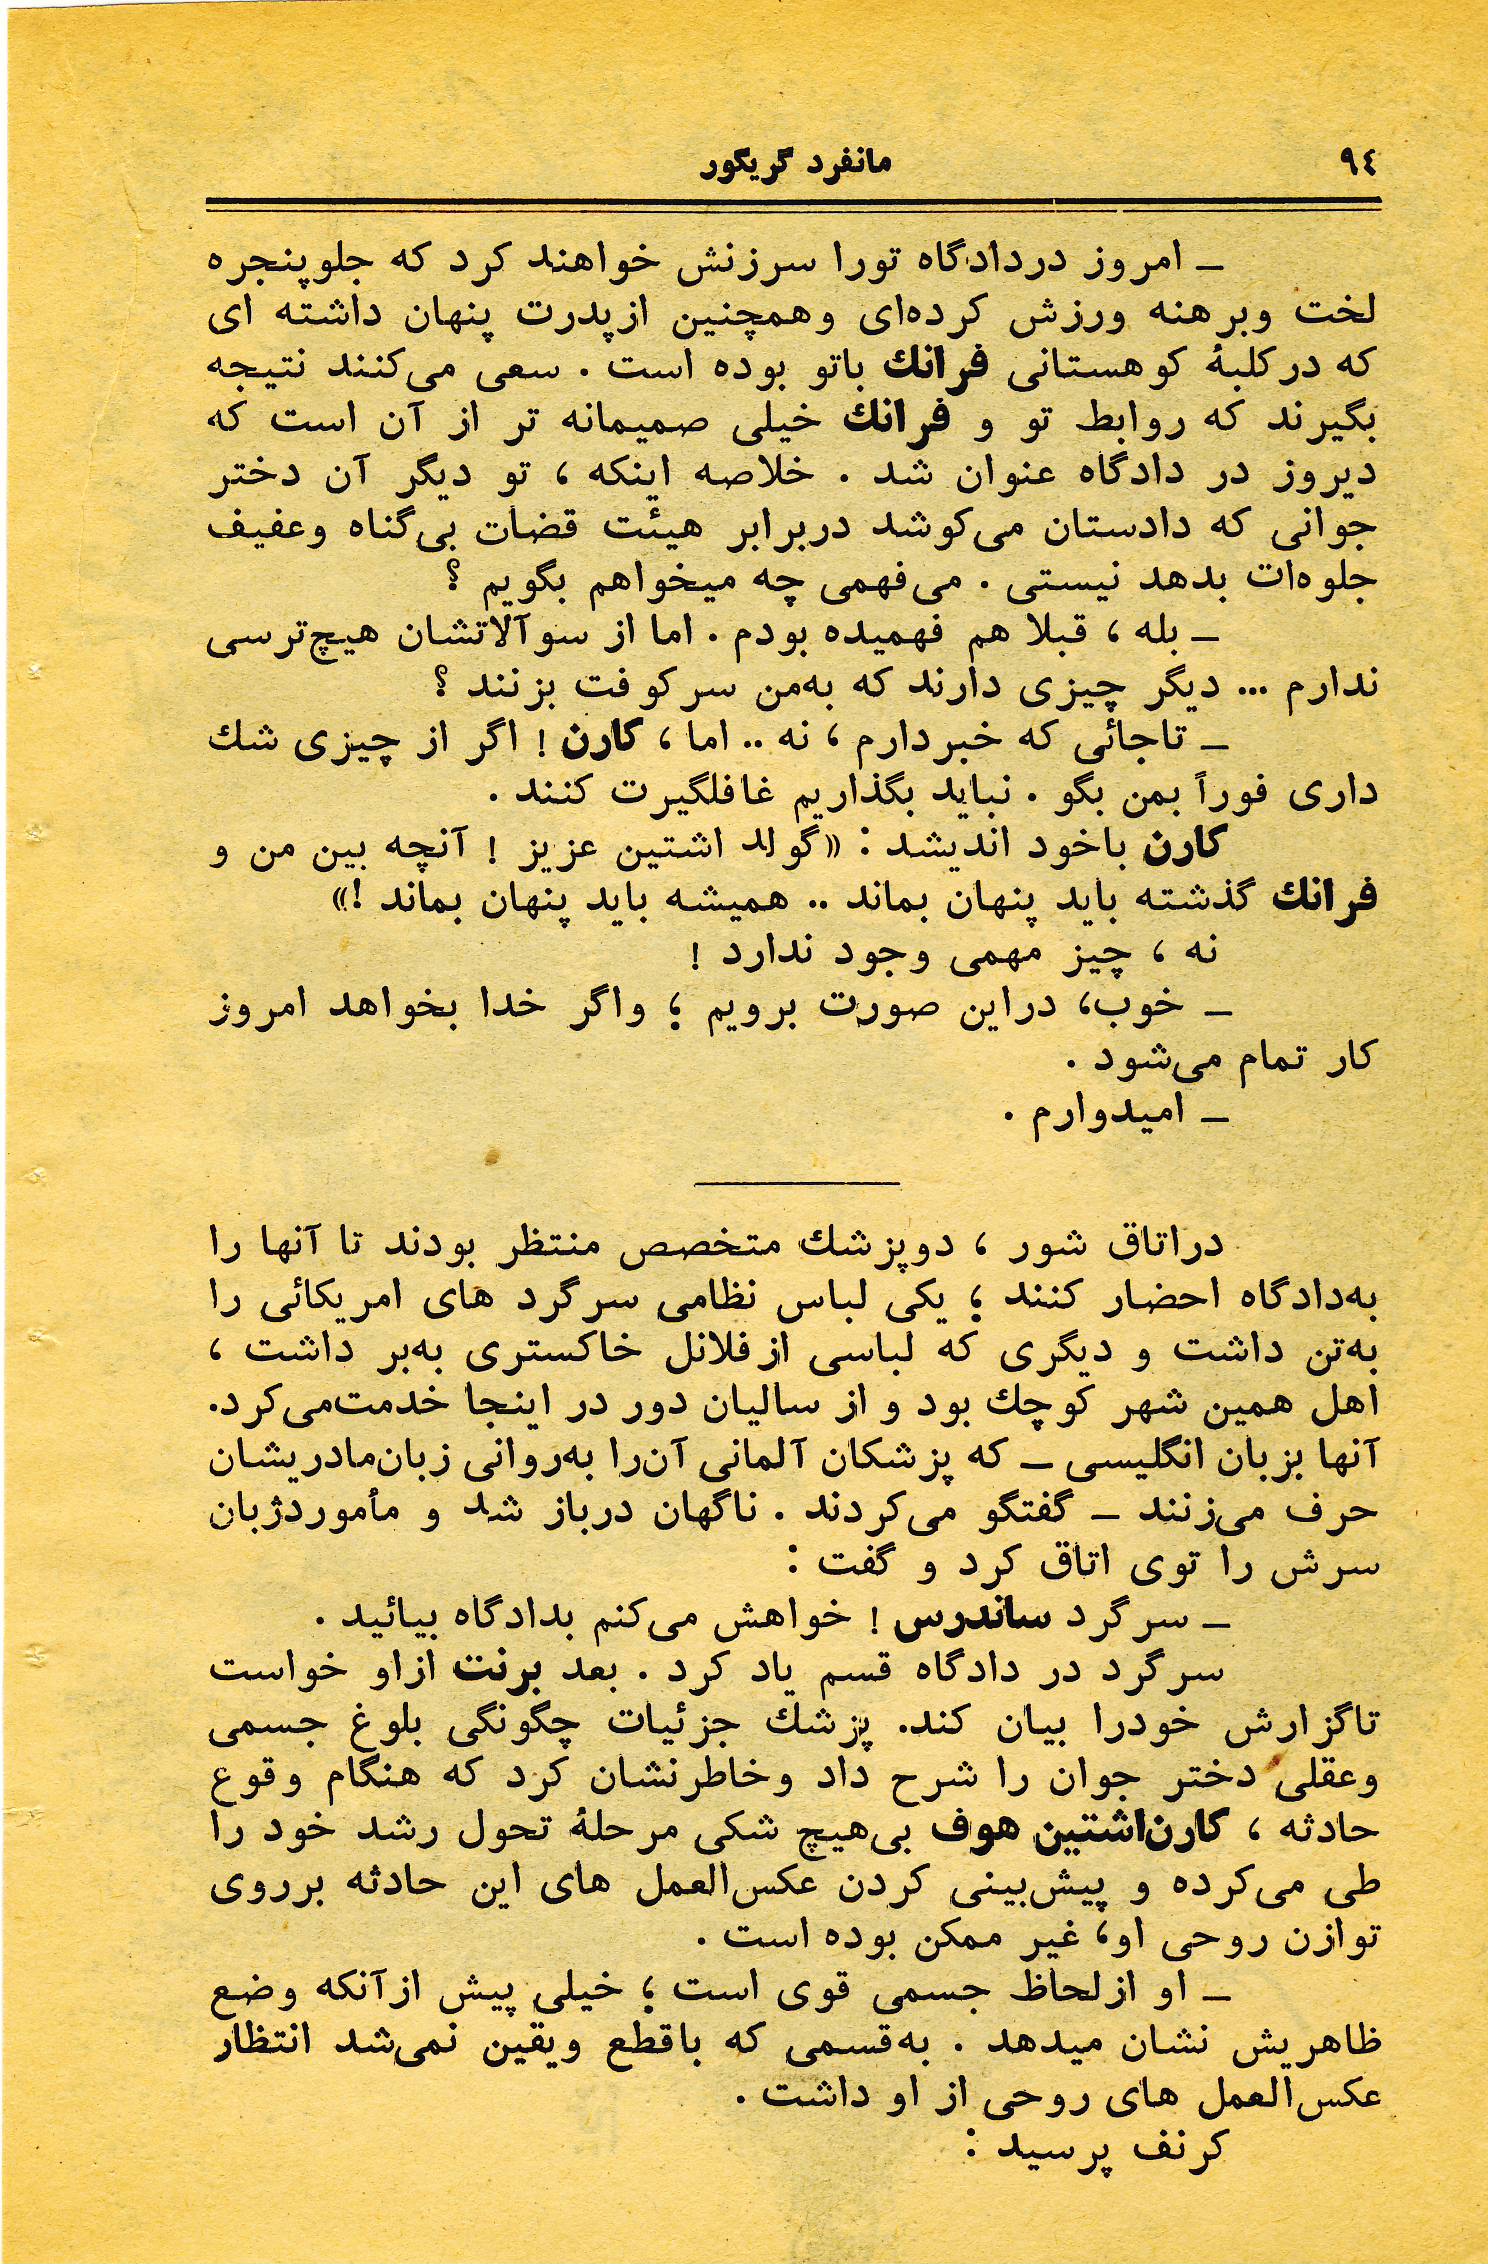 ۹٤
مانفرد گریگور
ـ امروز دردادگاه تورا سرزنش خواهند کرد که جلوپنجره
لخت وبرهنه ورزش کرده‌ای وهمچنین ازپدرت پنهان داشته ای
که درکلبهٔ کوهستانی فرانك باتو بوده است . سعی می‌کنند نتیجه
بگیرند که روابط تو و فرانك خیلی صمیمانه تر از آن است که
دیروز در دادگاه عنوان شد . خلاصه اینکه ، تو دیگر آن دختر
جوانی که دادستان می‌کوشد دربرابر هیئت قضات بی‌گناه وعفیف
جلوه‌ات بدهد نیستی . می‌فهمی چه میخواهم بگویم ؟
ـ بله ، قبلا هم فهمیده بودم . اما از سوآلاتشان هیچ‌ترسی
ندارم ... دیگر چیزی دارند که به‌من سرکوفت بزنند ؟
ـ تاجائی که خبردارم ، نه .. اما ، کارن ! اگر از چیزی شك
داری فوراً بمن بگو . نباید بگذاریم غافلگیرت کنند .
کارن باخود اندیشد : «گولد اشتین عزیز ! آنچه بین من و
فرانك گذشته باید پنهان بماند .. همیشه باید پنهان بماند !»
نه ، چیز مهمی وجود ندارد !
ـ خوب، دراین صورت برویم ؛ واگر خدا بخواهد امروز
کار تمام می‌شود .
ـ امیدوارم .
دراتاق شور ، دوپزشك متخصص منتظر بودند تا آنها را
به‌دادگاه احضار کنند ؛ یکی لباس نظامی سرگرد های امریکائی را
به‌تن داشت و دیگری که لباسی ازفلانل خاکستری به‌بر داشت ،
اهل همین شهر کوچك بود و از سالیان دور در اینجا خدمت‌می‌کرد.
آنها بزبان انگلیسی ـ که پزشکان آلمانی آن‌را به‌روانی زبان‌مادریشان
حرف می‌زنند ـ گفتگو می‌کردند . ناگهان درباز شد و مأموردژبان
سرش را توی اتاق کرد و گفت :
ـ سرگرد ساندرس ! خواهش می‌کنم بدادگاه بیائید .
سرگرد در دادگاه قسم یاد کرد . بعد برنت ازاو خواست
تاگزارش خودرا بیان کند. پزشك جزئیات چگونگی بلوغ جسمی
وعقلی دختر جوان را شرح داد وخاطرنشان کرد که هنگام وقوع
حادثه ، کارن‌اشتین هوف بی‌هیچ شکی مرحلهٔ تحول رشد خود را
طی می‌کرده و پیش‌بینی کردن عکس‌العمل های این حادثه برروی
توازن روحی او، غیر ممکن بوده است .
ـ او ازلحاظ جسمی قوی است ؛ خیلی پیش ازآنکه وضع
ظاهریش نشان میدهد . به‌قسمی که باقطع ویقین نمی‌شد انتظار
عکس‌العمل های روحی از او داشت .
کرنف پرسید :